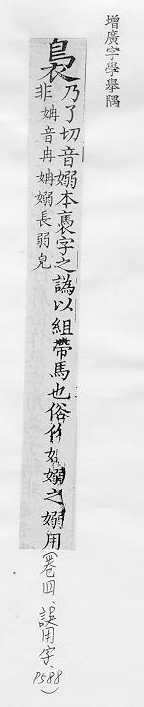 增廣字學舉隅
裊乃了切音嫋本褭字之譌以組帶馬也俗作姌嫋之嫋用
非姌音冉姌嫋長弱皃
(卷四、誤用字、P588)